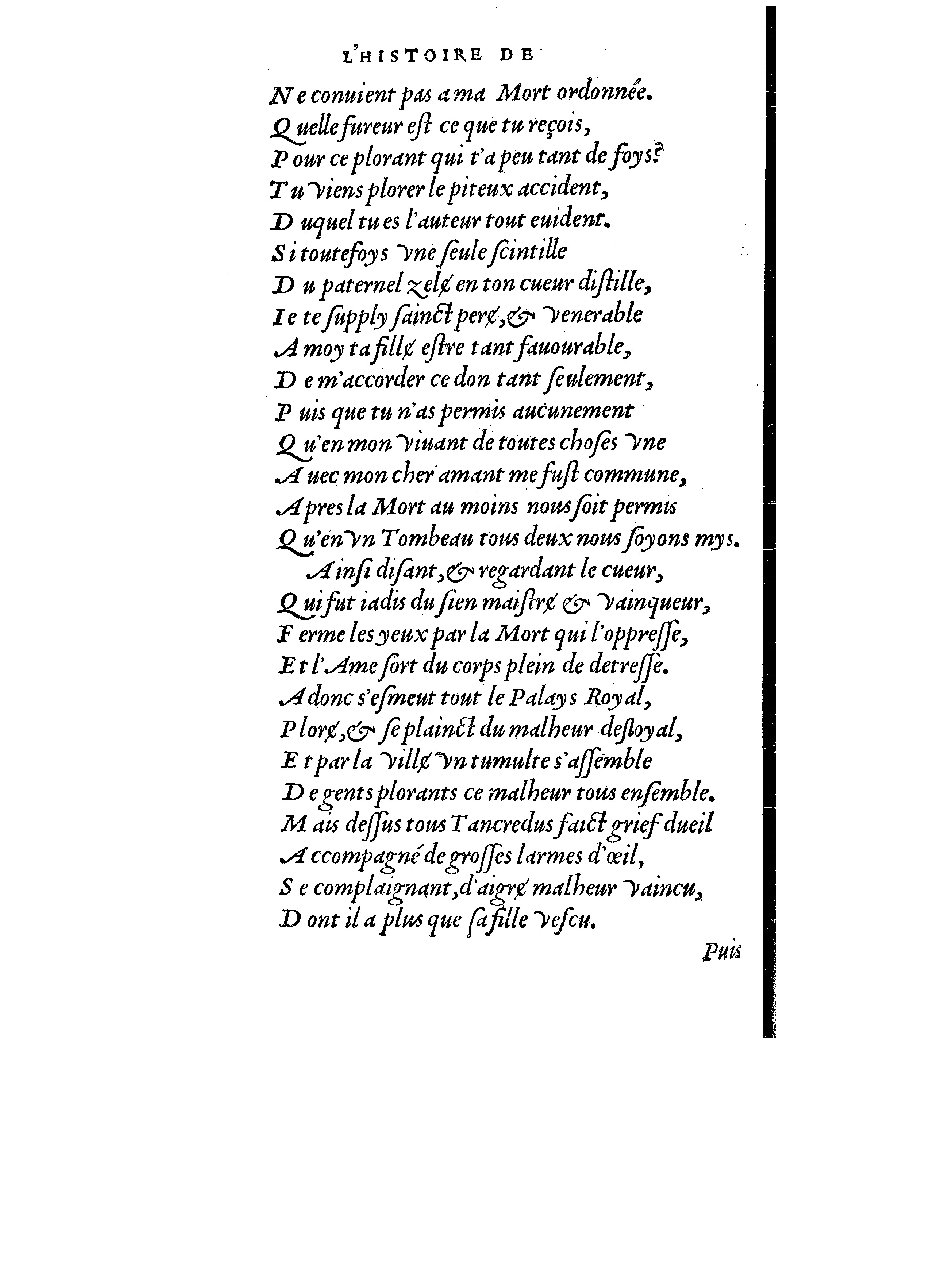 L'HISTOIRE DE
Ne conuient pas a ma Mort ordonnée.
Quelle fureur eſt ce que tu reçois,
Pour ce plorant qui t'a peu tant de foys?
Tu viens plorer le piteux accident,
Duquel tu es l'auteur tout euident.
Si toutefoys vne ſeule ſcintille
Du paternel zelɇ en ton cueur diſtille,
Ie te ſupply ſainct perɇ, & venerable
A moy ta fillɇ eſtre tant fauourable,
De m'accorder ce don tant ſeulement,
Puis que tu n'as permis aucunement
Qu'en mon viuant de toutes choſes vne
Auec mon cher amant me fuſt commune,
Apres la Mort au moins nous ſoit permis
Qu'en vn Tombeau tous deux nous ſoyons mys.
Ainſi diſant, & regardant le cueur,
Qui fut iadis du ſien maiſtrɇ & vainqueur,
Ferme les yeux par la Mort qui l'oppreſſe,
Et l'Ame ſort du corps plein de detreſſe.
Adonc s'eſmeut tout le Palays Royal,
Plorɇ, & ſe plainct du malheur desloyal,
Et par la villɇ vn tumulte s'aſſemble
De gents plorants ce malheur tous enſemble.
Mais deſſus tous Tancredus faict grief dueil
Accompagné de groſſes larmes d'œil,
Se complaignant, d'aigrɇ malheur vaincu,
Dont il a plus que ſa fille veſcu.
Puis